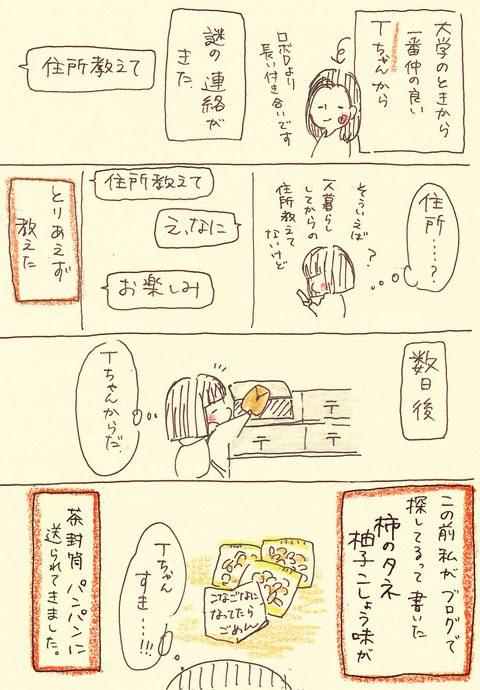 大学のときから
一番仲の良い
Tちゃんから
ロボDより
長い付き合いです
謎の連絡が
きた
住所教えて
住所……?
?
そういえば
一人暮らし
してからの
住所教えて
ないけど
住所教えて
え、なに
お楽しみ
とりあえず
教えた
数日後
〒
〒
〒
Tちゃんからだ
この前私がブログで
探してるって書いた
柿のタネ
柚子こしょう味が
こなごなに
なってたら
ごめん
Tちゃん
すき…!!!
茶封筒パンパンに
送られてきました。